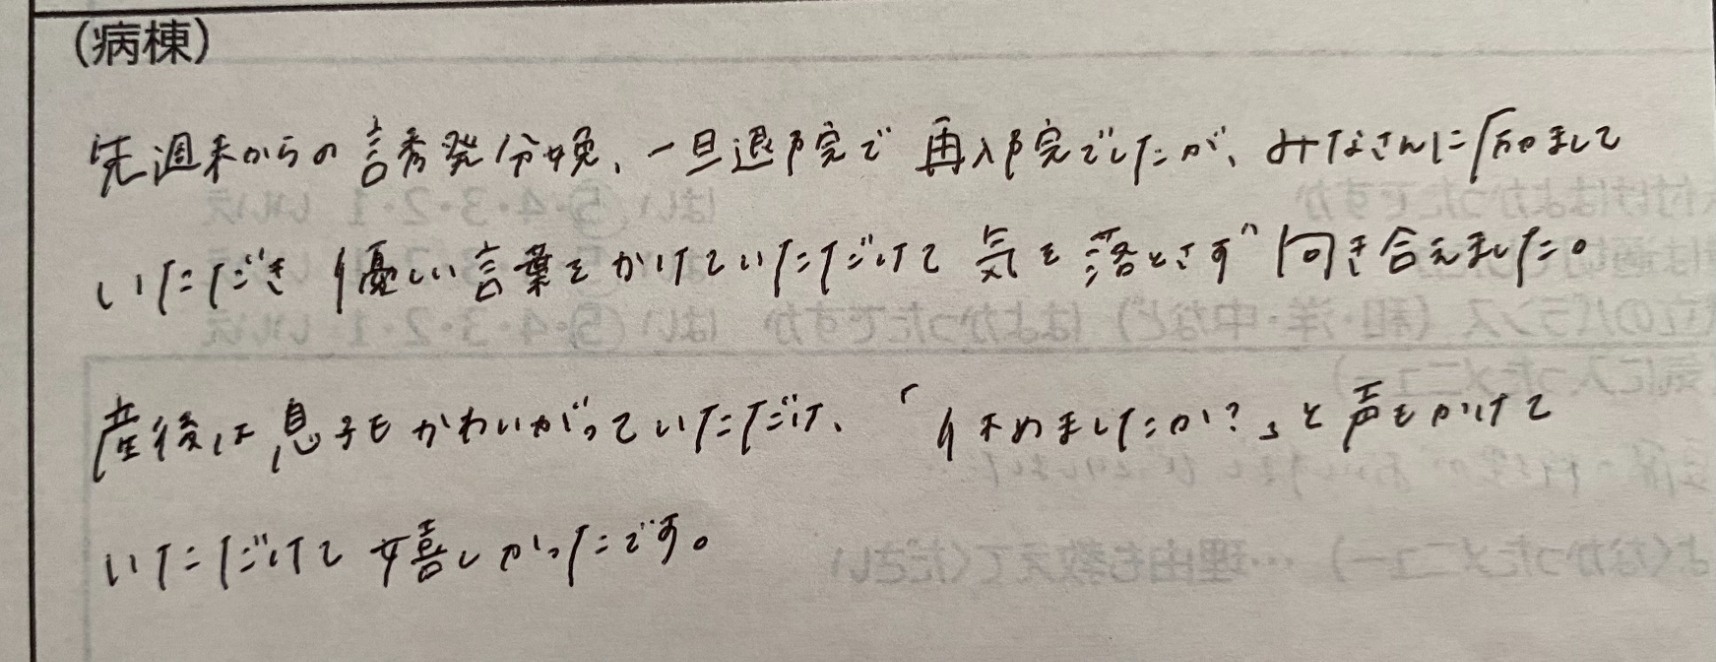 (病棟)
先週末からの誘発分娩、一旦退院で再入院でしたが、みなさんに励まして
いただき優しい言葉をかけていただけて気を落とさず向き合えました。
産後は息子もかわいがっていただけ、「休めましたか?」と声もかけて
いただけて嬉しかったです。